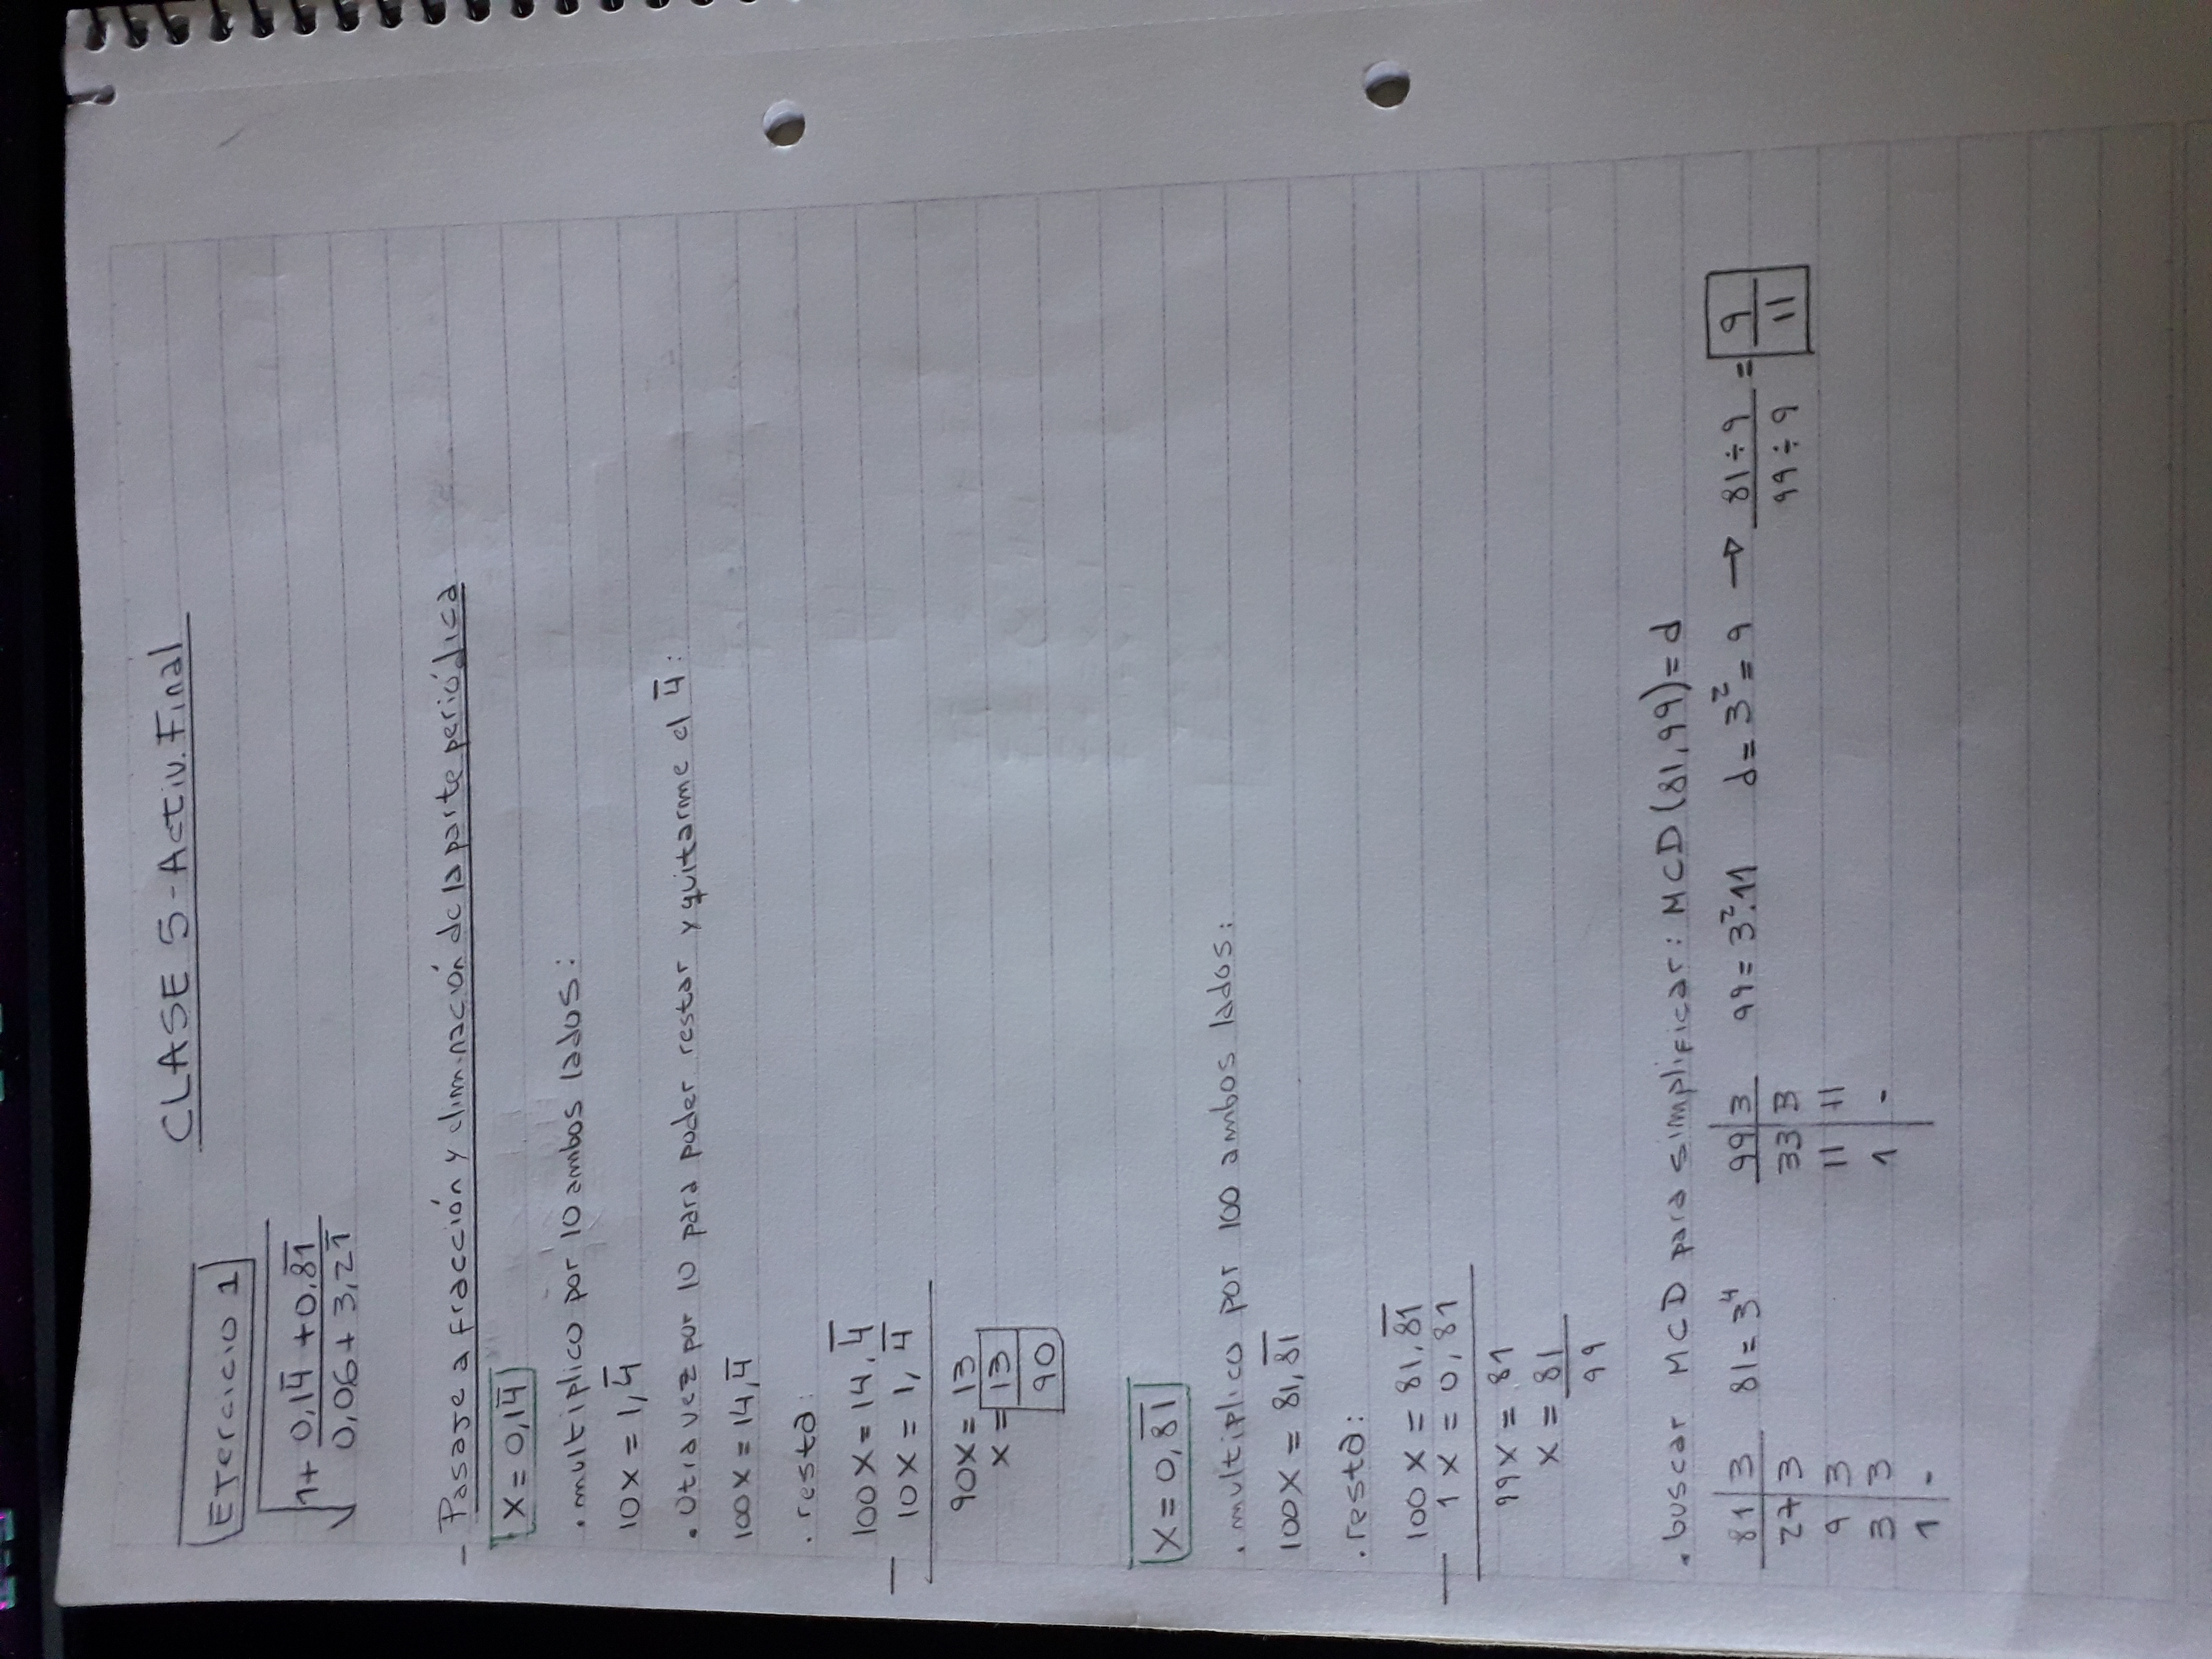 CLASE 5 - Activ. Final
Ejercicio 1
√(1 + (0,14̅ + 0,8̅1̅)/(0,06 + 3,21̅))
- Pasaje a fracción y eliminación de la parte periódica
x = 0,14̅
. multiplico por 10 ambos lados:
10x = 1,4̅
. Otra vez por 10 para poder restar y quitarme el 4̅:
100x = 14,4̅
. resta:
100x = 14,4̅
- 10x = 1,4̅
90x = 13
x = 13
90
x = 0,8̅1̅
. multiplico por 100 ambos lados:
100x = 81,8̅1̅
. resta:
100x = 81,8̅1̅
- 1x = 0,81
99x = 81
x = 81
99
. buscar MCD para simplificar: MCD (81,99) = d
81 | 3 81 = 3⁴ 99 | 3 99 = 3².11 d = 3² = 9 → 81÷9 / 99÷9 = 9/11
27 | 3 33 | 3
9 | 3 11 | 11
3 | 3 1 | -
1 | -